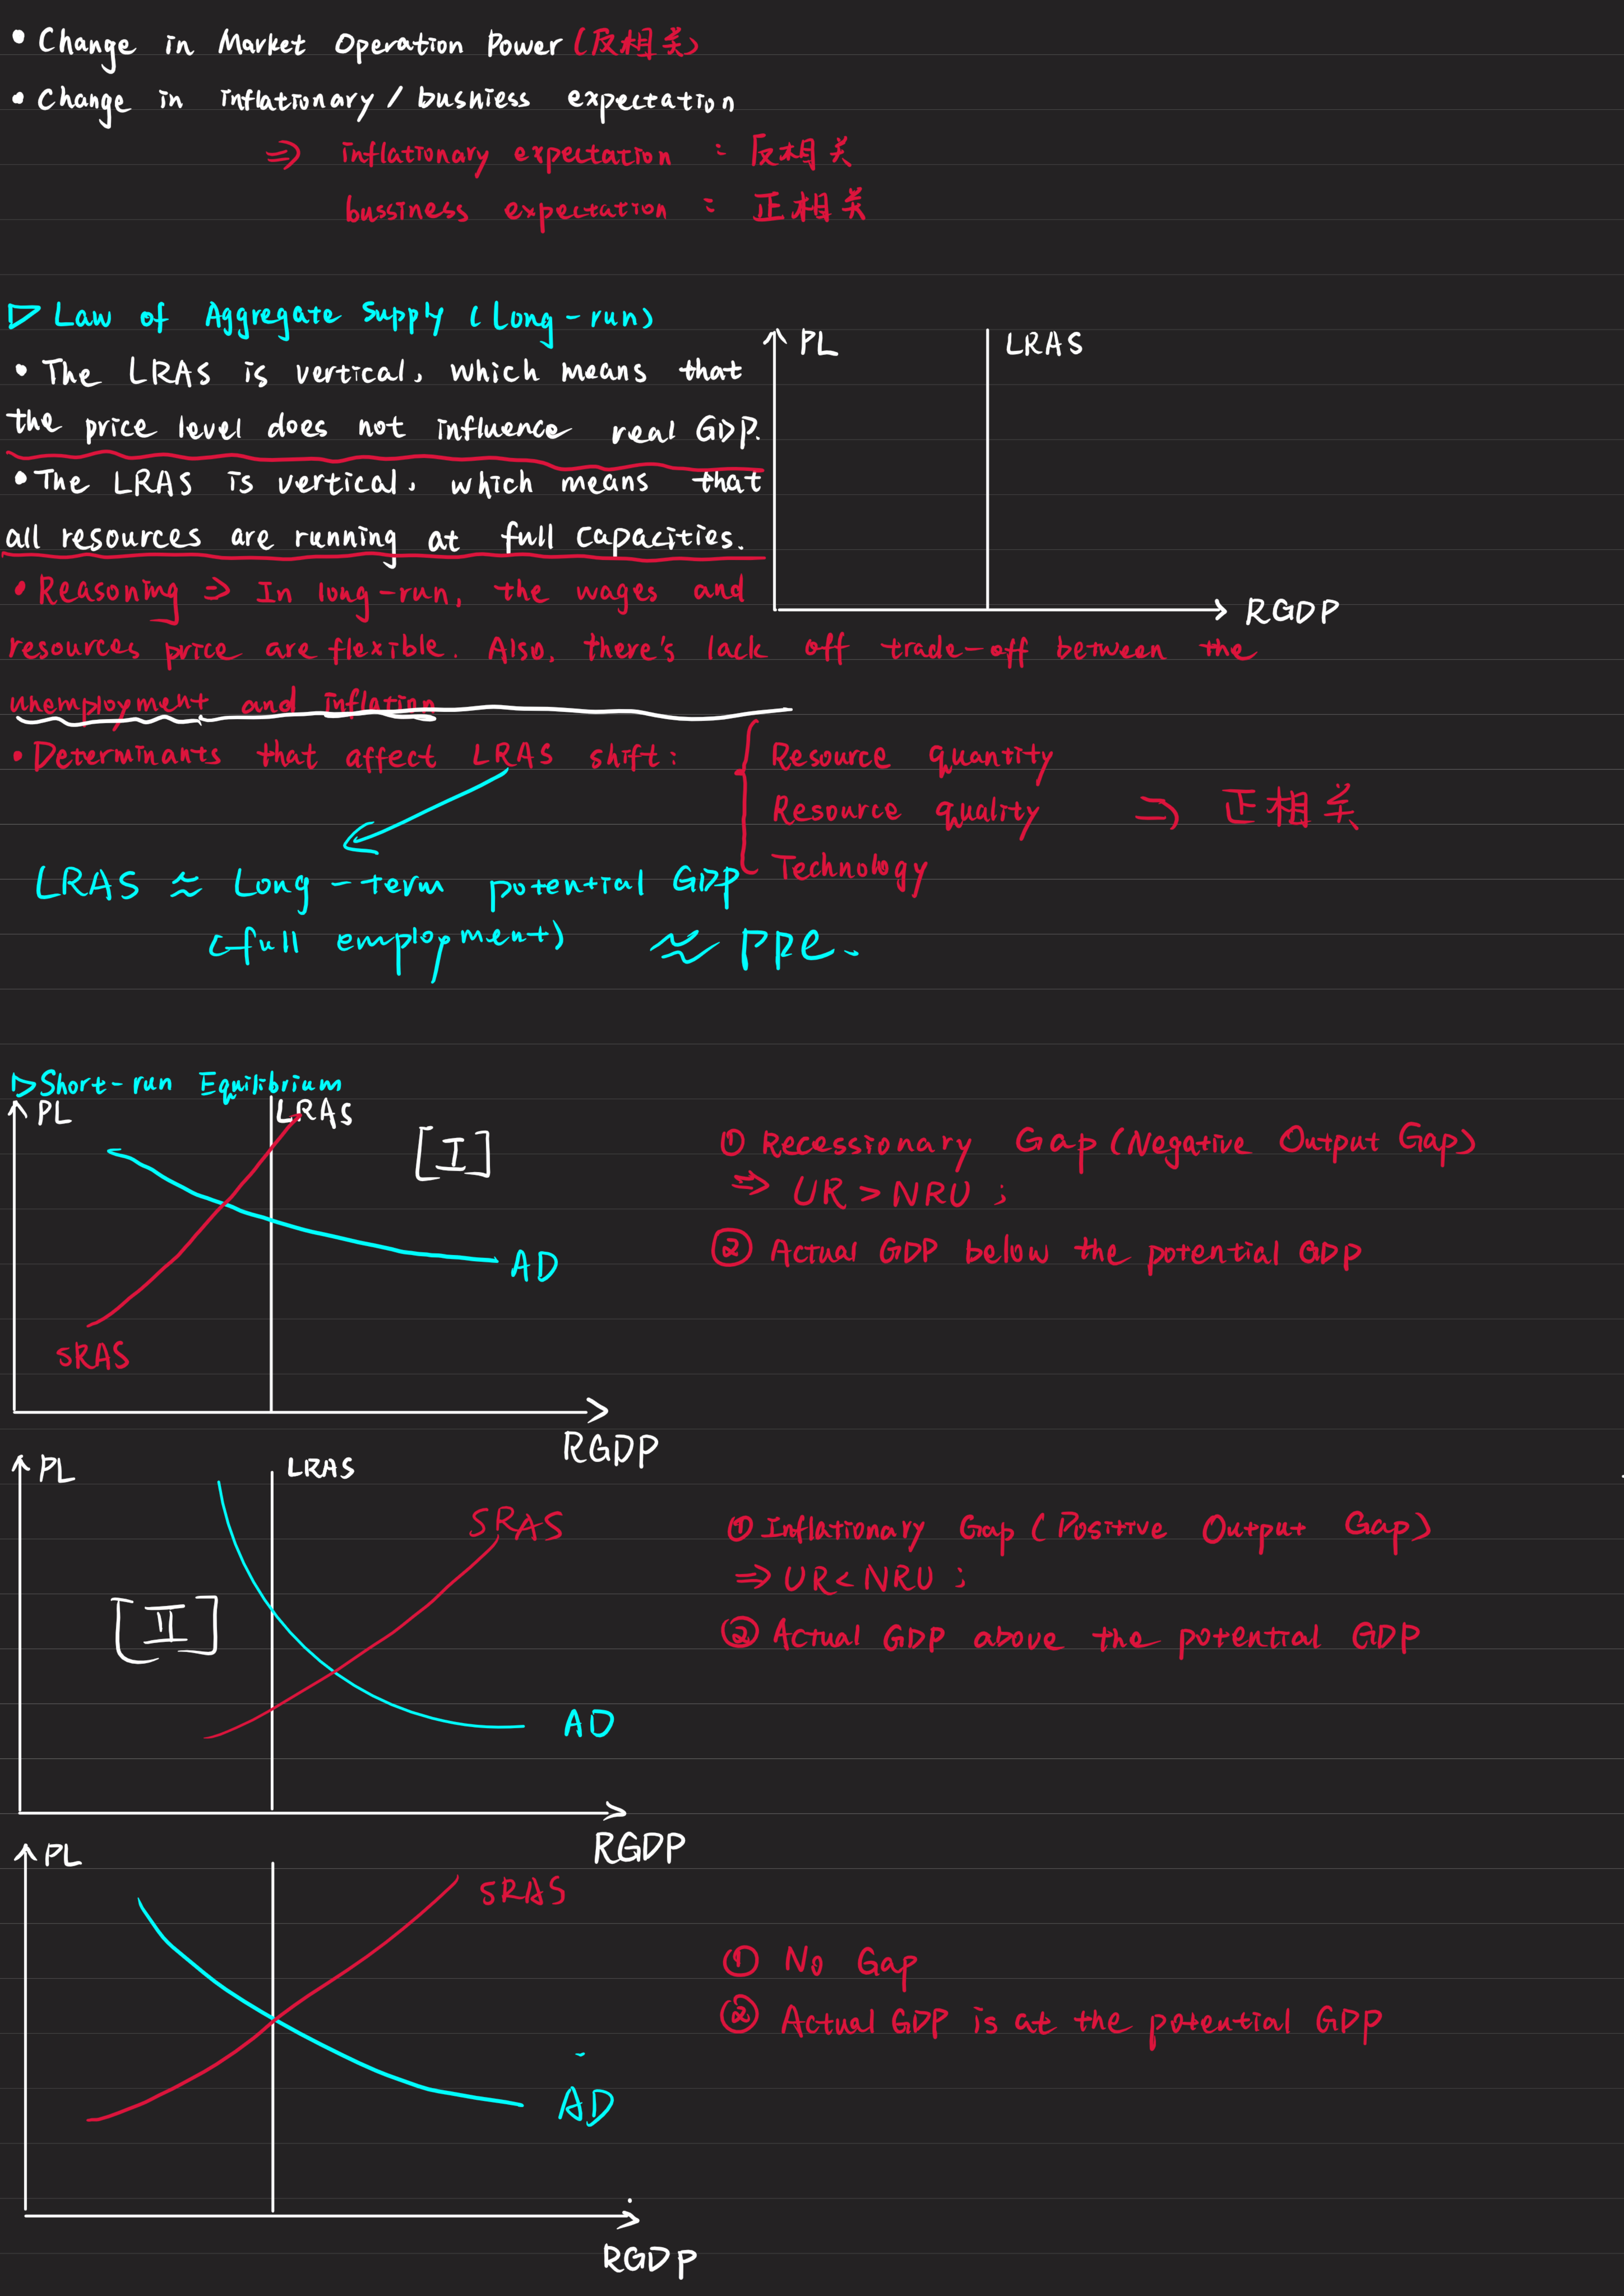 • Change in Market Operation Power (反相关)
• Change in inflationary / bushiess expectation
⇒ inflationary expectation : 反相关
bussiness expectation : 正相关
▷ Law of Aggregate Supply (Long-run)
• The LRAS is vertical, which means that
the price level does not influence real GDP.
• The LRAS is vertical, which means that
all resources are running at full capacities.
PL
LRAS
RGDP
• Reasoning ⇒ In long-run, the wages and
resources price are flexible. Also, there's lack off trade-off between the
unemployment and inflation
• Determinants that affect LRAS shift:
Resource quantity
Resource quality ⇒ 正相关
Technology
LRAS ≈ Long-term potential GDP
(full employment) ≈ PPC.
▷ Short-run Equilibrium
PL
LRAS
[I]
AD
SRAS
RGDP
① Recessionary Gap (Negative Output Gap)
⇒ UR > NRU ;
② Actual GDP below the potential GDP
PL
LRAS
SRAS
[II]
AD
RGDP
① Inflationary Gap (Positive Output Gap)
⇒ UR < NRU ;
② Actual GDP above the potential GDP
PL
SRAS
AD
RGDP
① No Gap
② Actual GDP is at the potential GDP